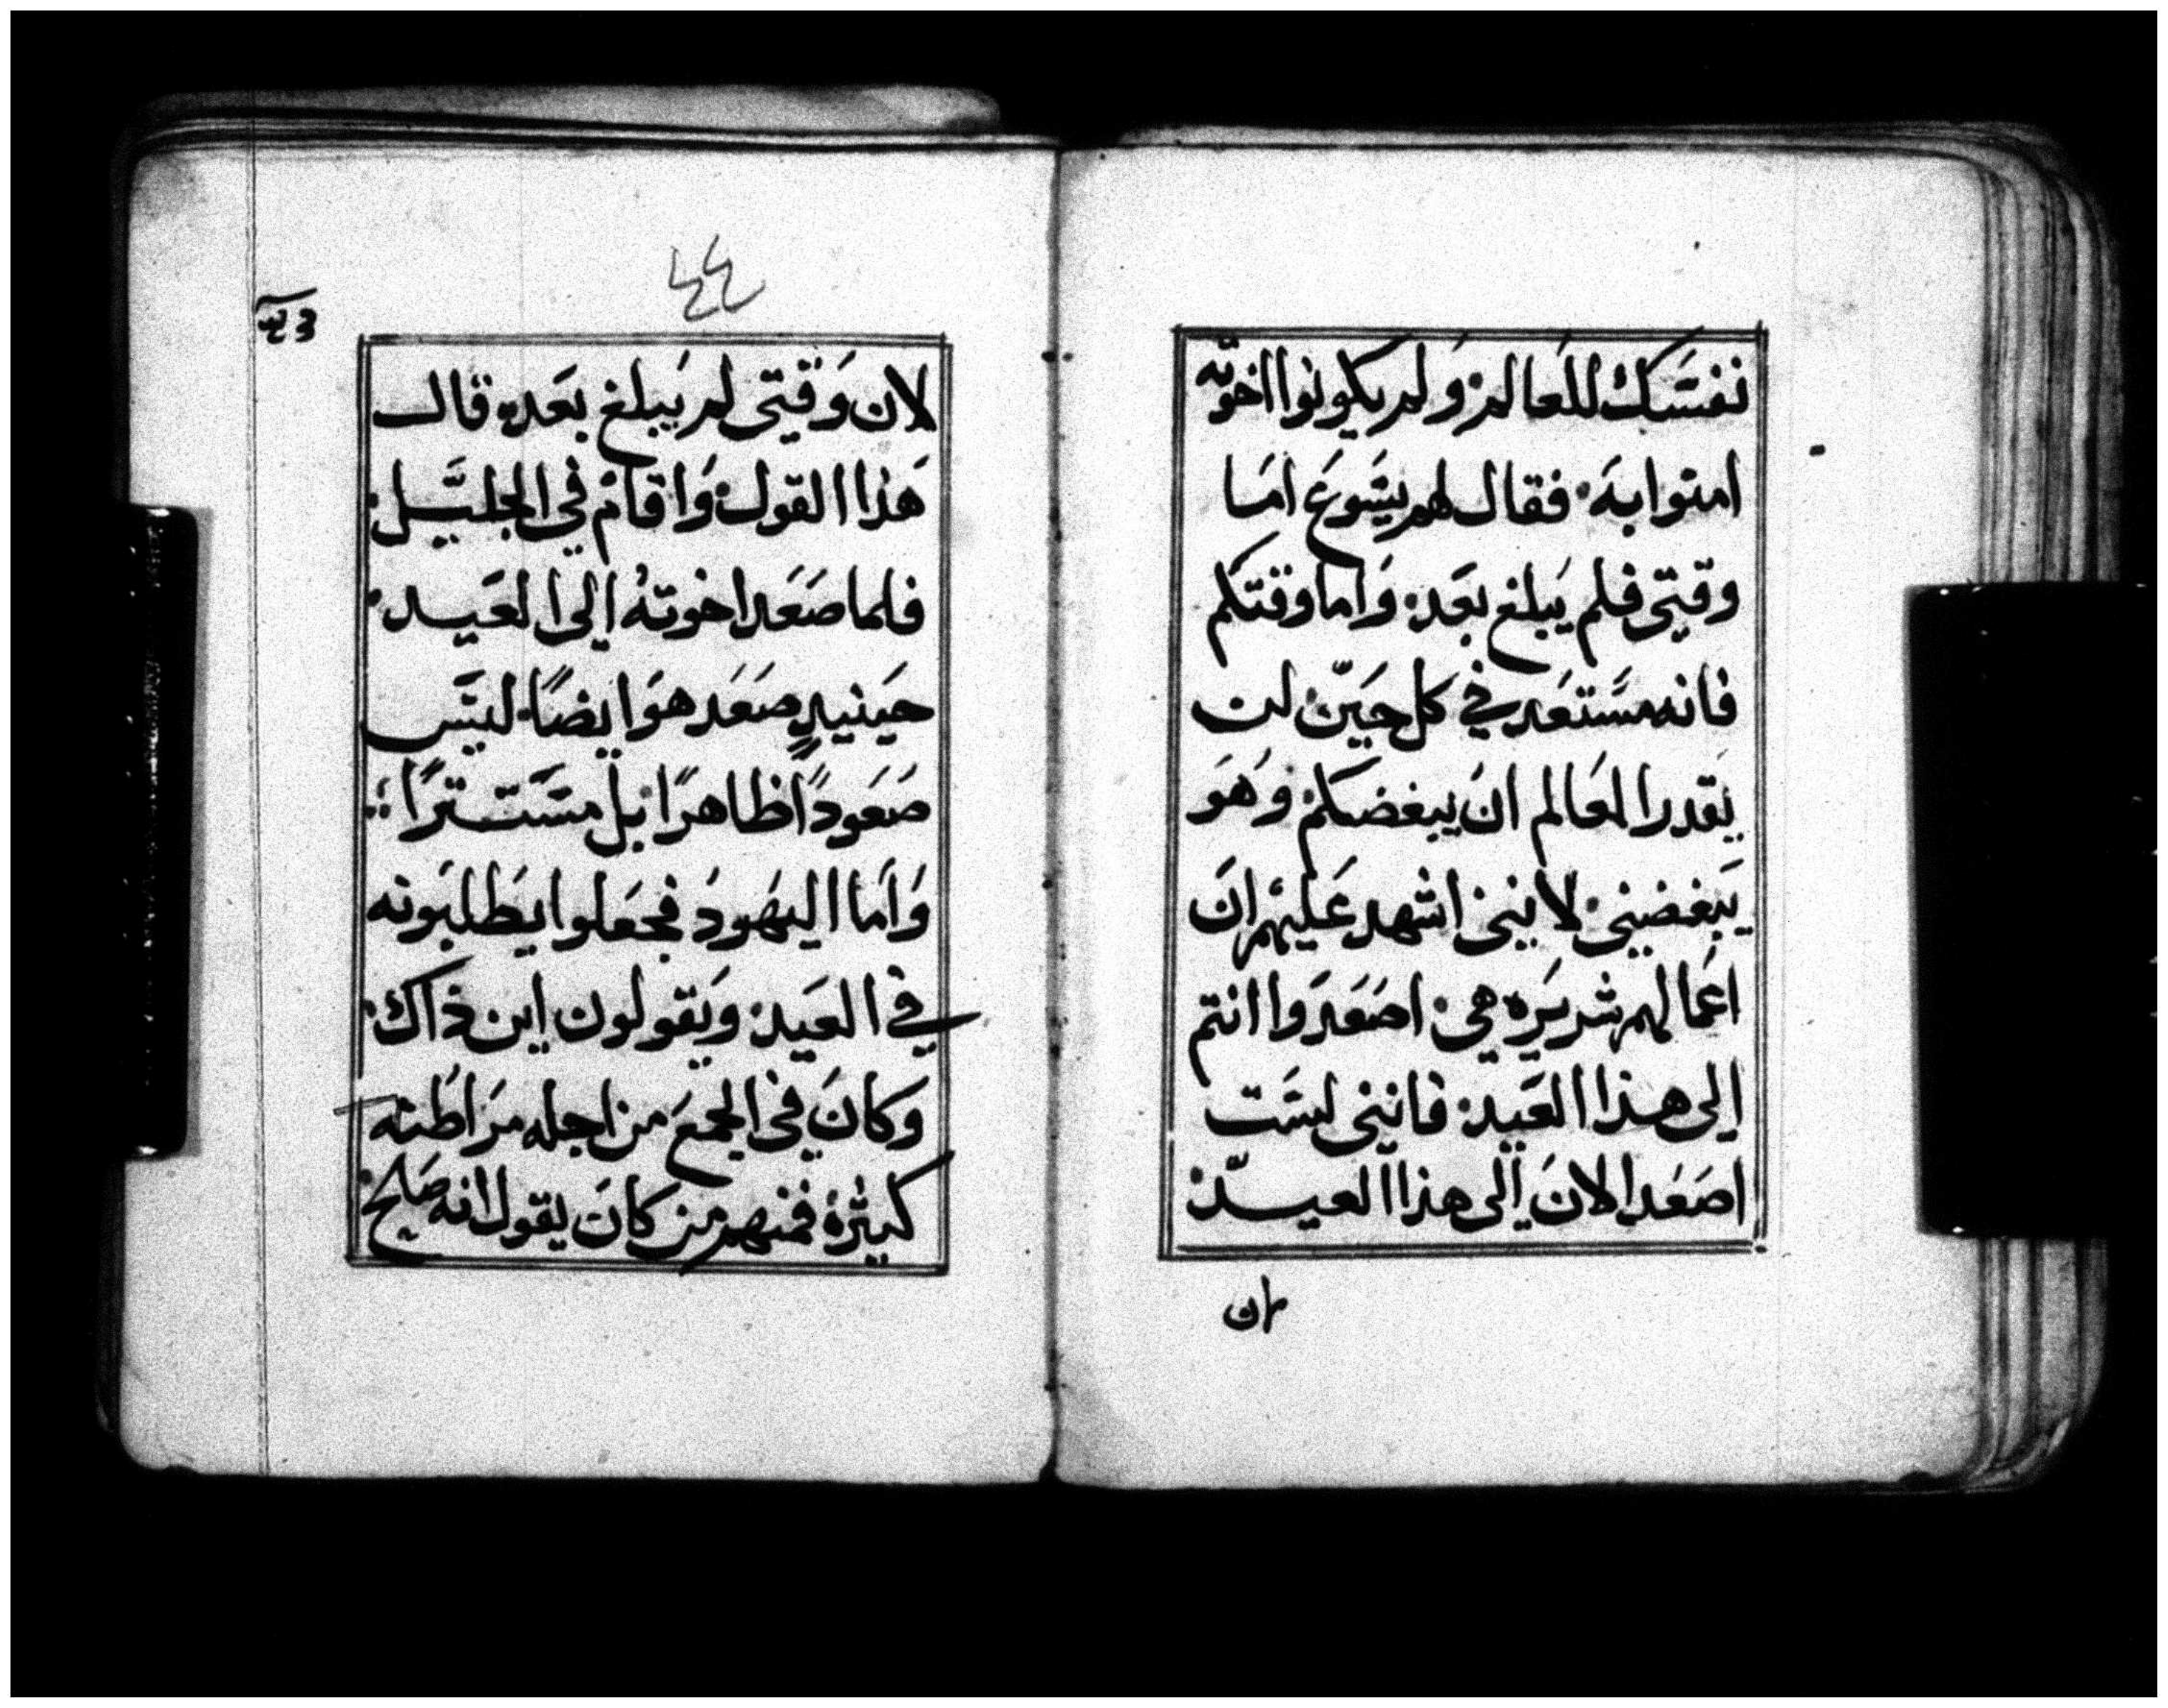 نفسَك للعَالمْ وَلم يكونوا اخوته
امنوا بهَ فقال لهم يسَوعَ امَا
وقتي فلم يَبلغ بعَد وَاما وقتكم
فانه مسَتعَد في كل حيَن لن
يَقدر العَالم انَ يبغضكمْ وَهوَ
يَبغضني لانني اشهد عَليهم انَ
اعَمالهم شريرَه هي اصعَدَوا انتم
الى هذا العَيد فانني لسَت
اصعَد الانَ الى هذا العيد
لان
٤٤
لان وَقتي لم يَبلغ بعَد قال
هَذا القول وَاقامْ في الجليَل
فلما صَعَد اخوتهُ الى العَيد
حيَنيدٍ صَعَد هوَ ايضًا ليسَ
صَعَودًا ظاهرًا بل مسَتترًا
وَامَا اليهَودُ فجعَلوا يَطلبَونه
في العَيد وَيَقولون اين ذاك
وَكانَ في الجمعَ من اجله مرَاطنه
كثيرة فمنهم من كانَ يقول انه صَالح